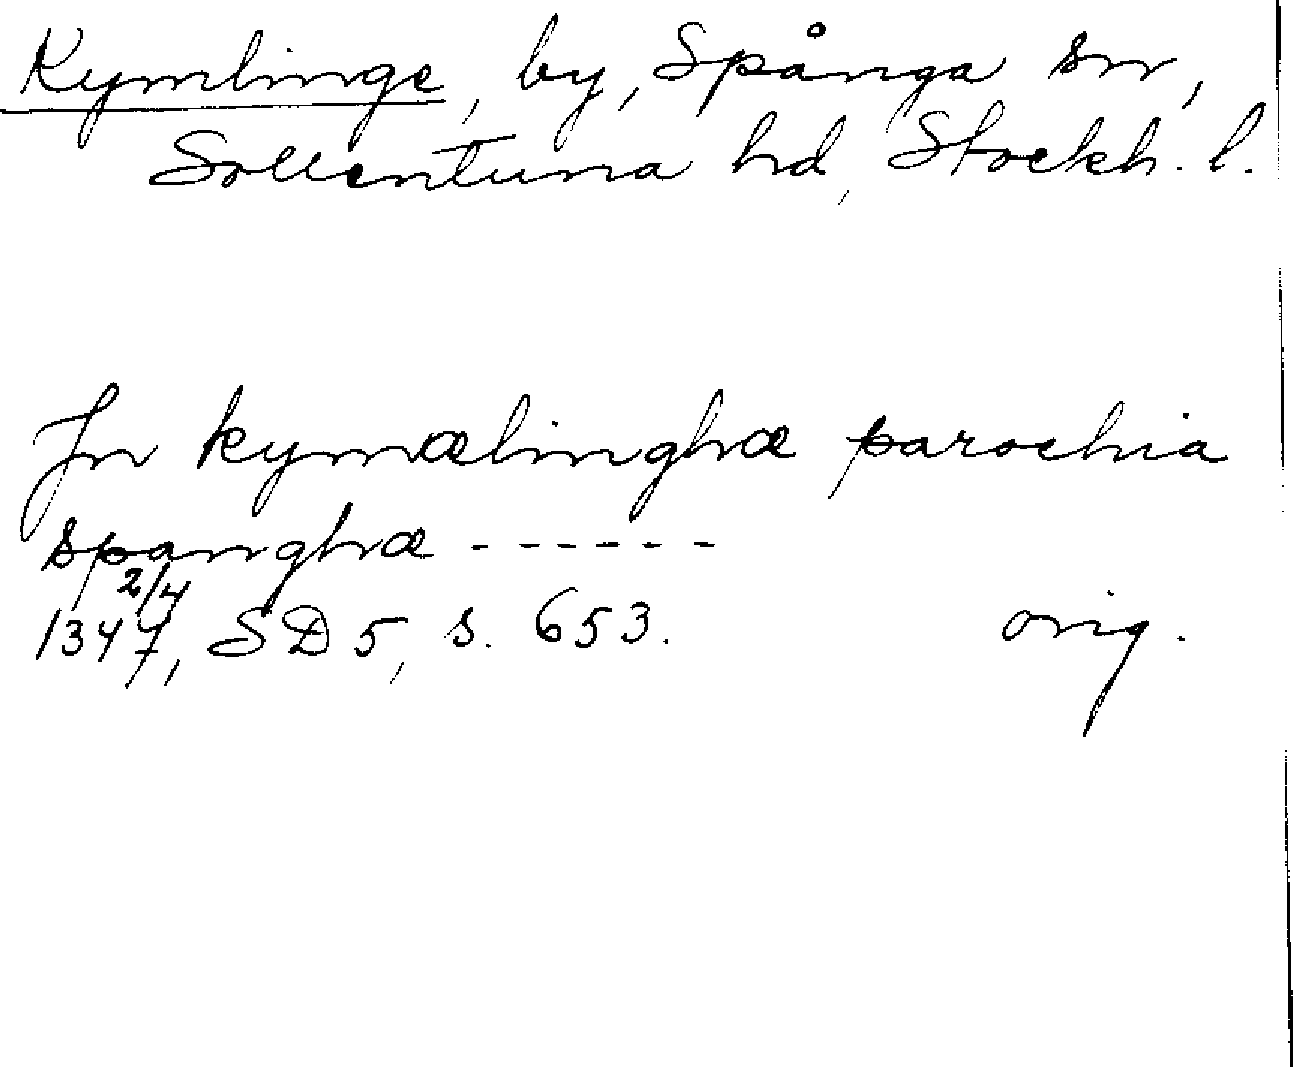 Kymlinge, by, Spånga sn,
Sollentuna hd, Stockh. l.
Jn kymælinghæ parochia
spanghæ ------
2/4
1347, SD 5, s. 653. orig.